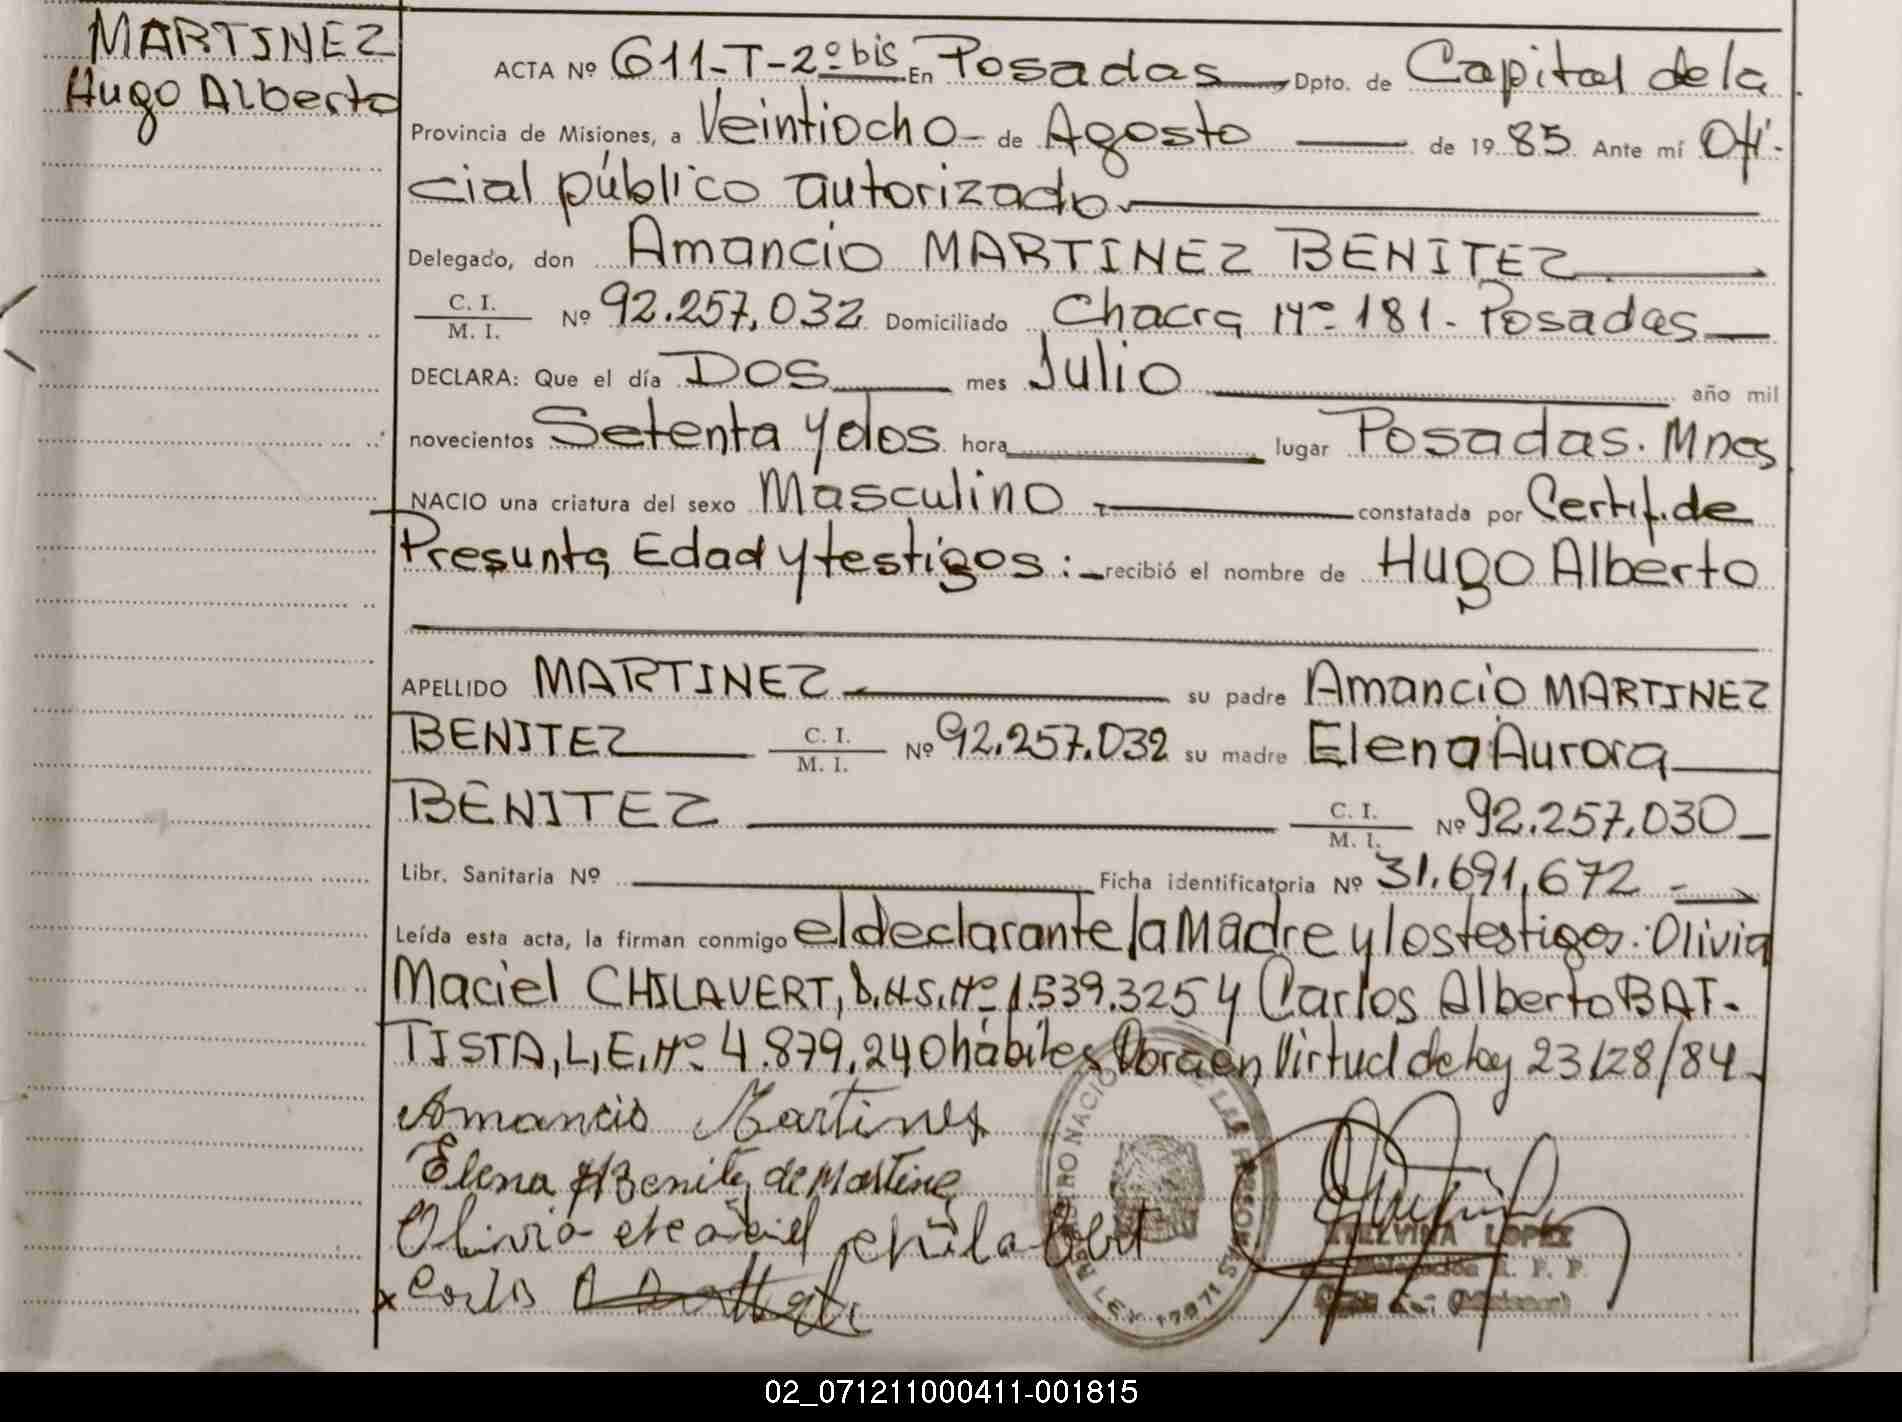 MARTINEZ
Hugo Alberto
ACTA Nº 611-T-2º bis En Posadas Dpto. de Capital de la
Provincia de Misiones, a Veintiocho de Agosto de 1985. Ante mí Ofi-
cial público autorizado
Delegado, don Amancio MARTINEZ BENITEZ
C. I. / M. I. Nº 92.257.032 Domiciliado Chacra Nº 181 - Posadas
DECLARA: Que el día Dos mes Julio año mil
novecientos Setenta y dos hora lugar Posadas. Mnes
NACIO una criatura del sexo Masculino constatada por Certif. de
Presunta Edad y testigos: recibió el nombre de Hugo Alberto
APELLIDO MARTINEZ su padre Amancio MARTINEZ
BENITEZ C. I. / M. I. Nº 92.257.032 su madre Elena Aurora
BENITEZ C. I. / M. I. Nº 92.257.030
Libr. Sanitaria Nº Ficha identificatoria Nº 31.691.672
Leída esta acta, la firman conmigo el declarante, la Madre y los testigos: Olivia
Maciel CHILAVERT, Nº 1.539.325 y Carlos Alberto BAT-
TISTA, L.E. Nº 4.879.240 hábiles Obra en Virtud de ley 23128/84
Amancio Martines
Elena A Benitez de Martinez
Olivia chilabert
Carlos
LEY 17671
LOPEZ
02_071211000411-001815